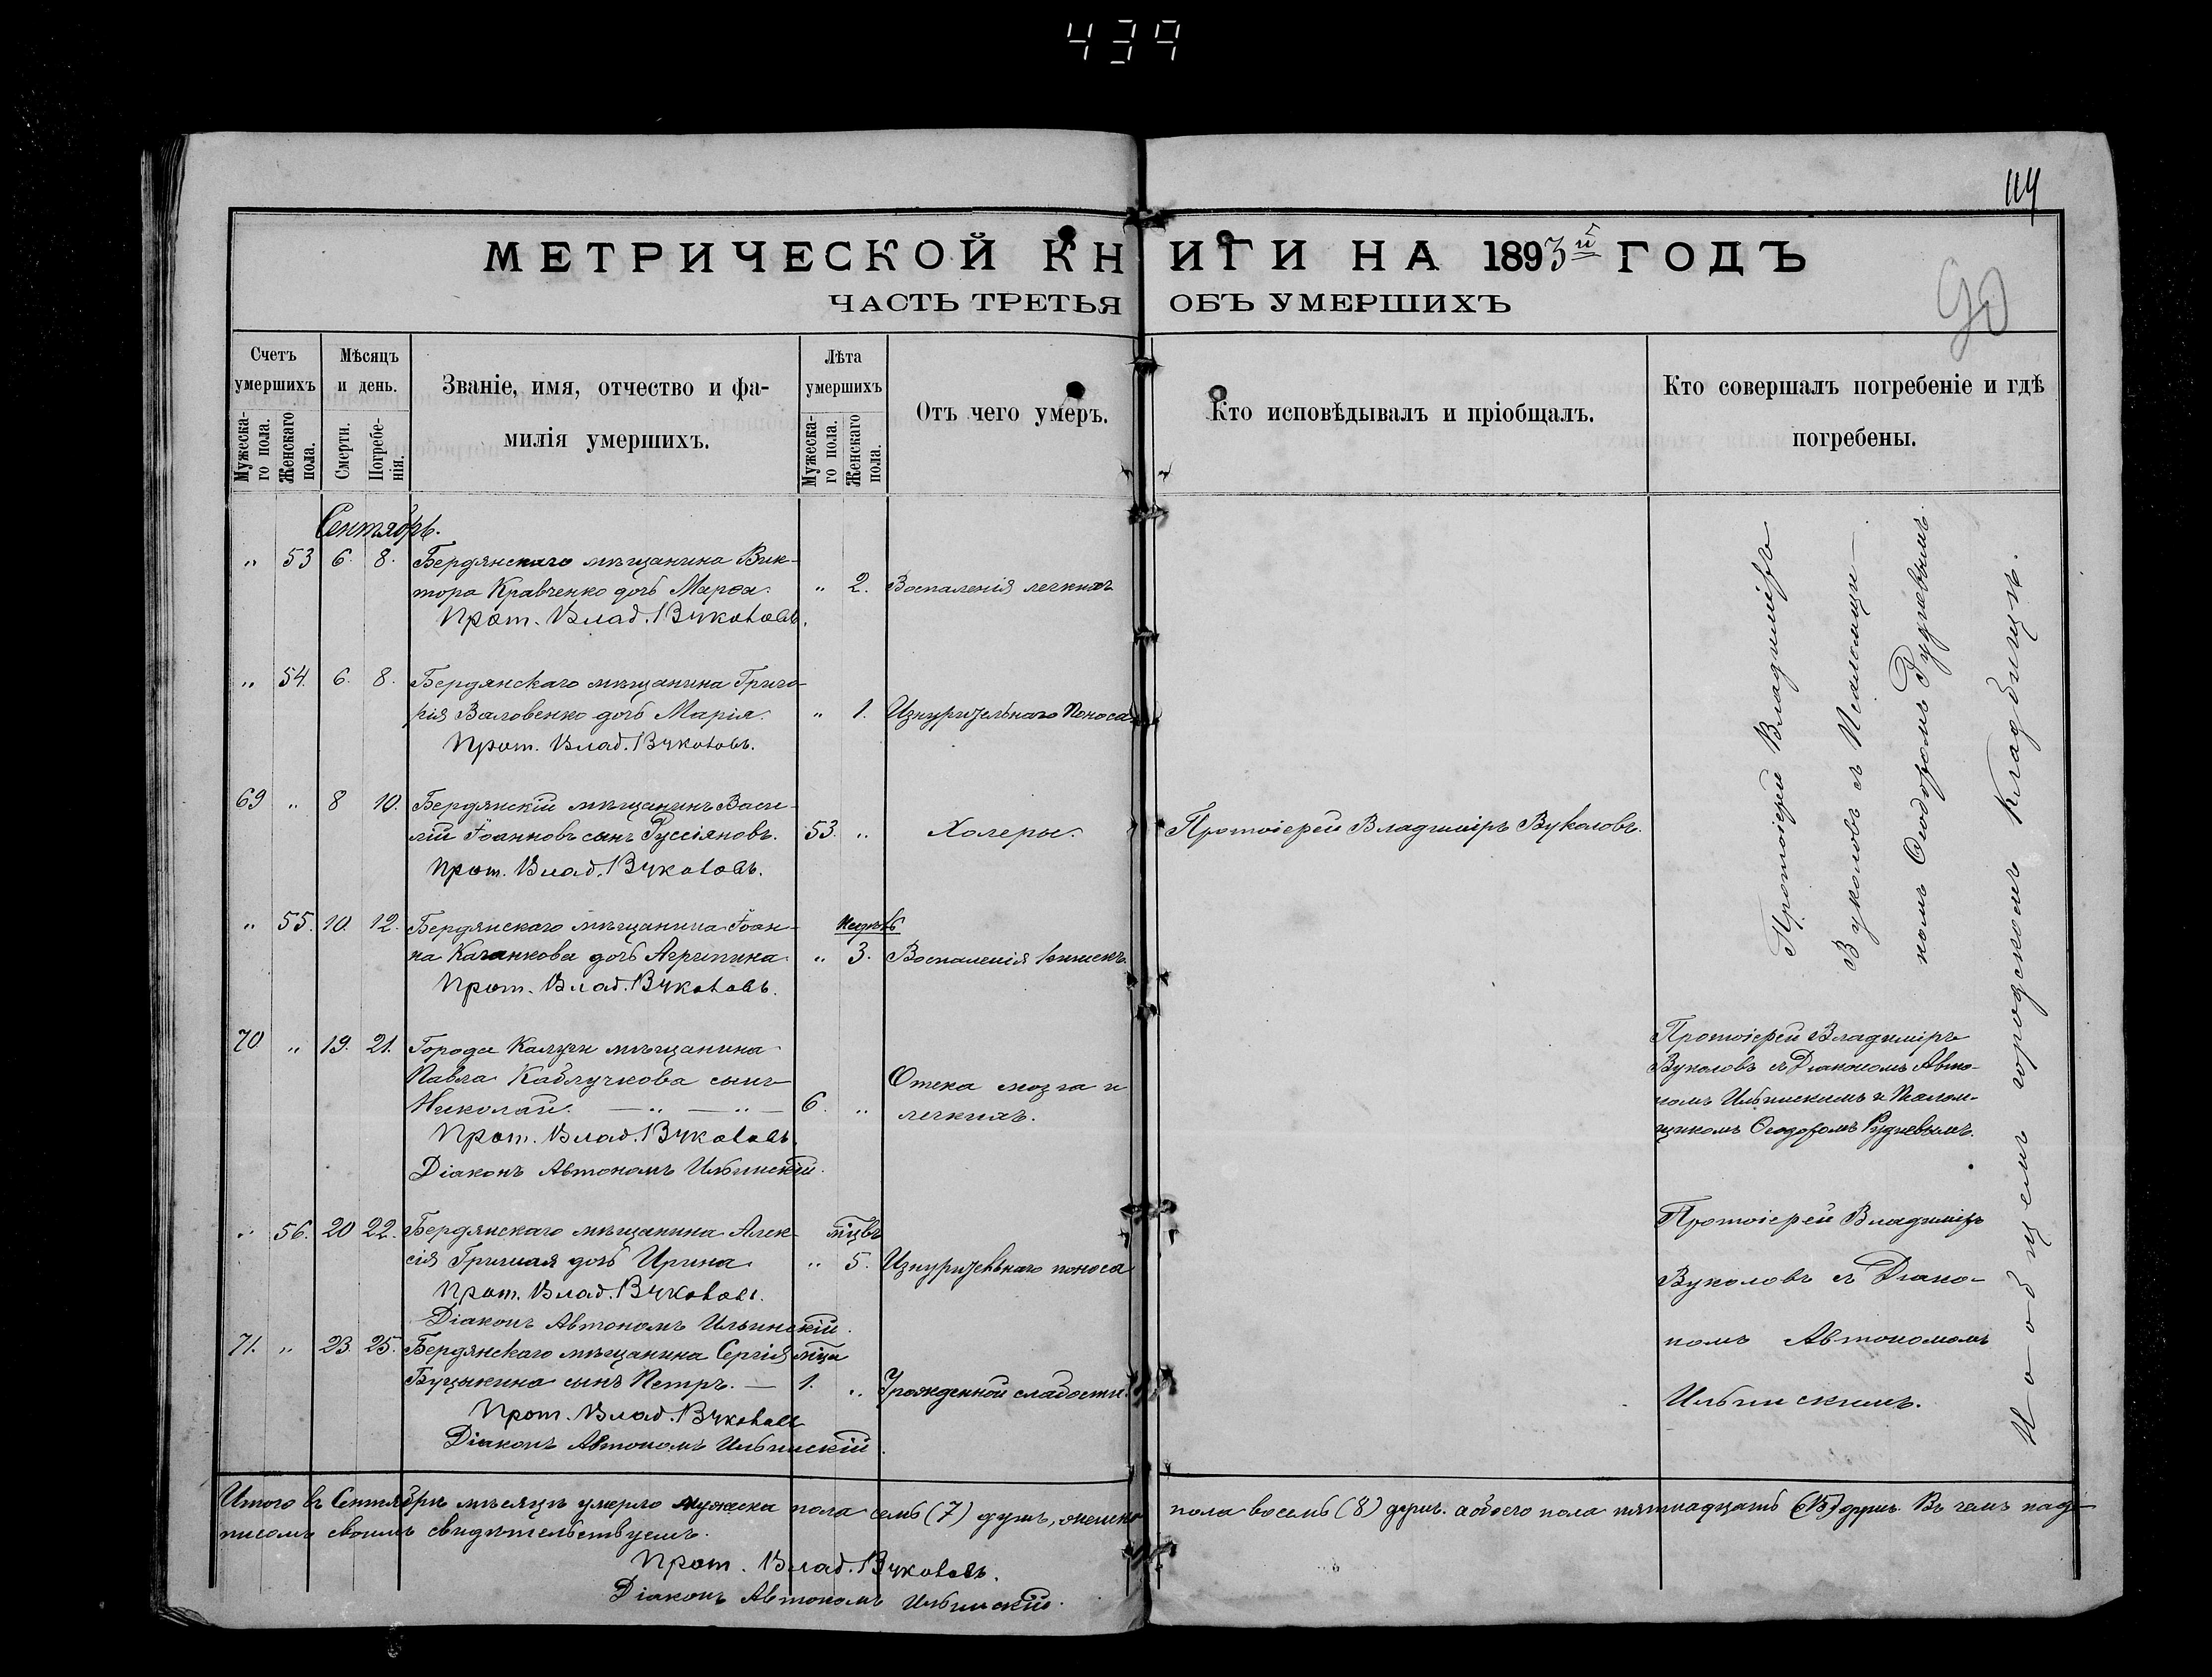 439
114
90
МЕТРИЧЕСКОЙ КНИГИ НА 1893й ГОДЪ
ЧАСТЬ ТРЕТЬЯ ОБЪ УМЕРШИХЪ
Счетъ умершихъ
Мужескаго пола.
Женскаго пола.
Мѣсяцъ и день.
Смерти.
Погребенія.
Званіе, имя, отчество и фамилія умершихъ.
Лѣта умершихъ
Мужескаго пола.
Женскаго пола.
Отъ чего умеръ.
Кто исповѣдывалъ и пріобщалъ.
Кто совершалъ погребеніе и гдѣ погребены.
Сентябрь.
" 53 6. 8. Бердянскаго мѣщанина Вик-
тора Кравченко дочь Марѳа. " 2. Воспаленія легкихъ
Прот. Влад. Вуколовъ.
" 54. 6. 8. Бердянскаго мѣщанина Григо-
рія Валовенко дочь Марія. " 1. Изнурительнаго поноса
Прот. Влад. Вуколовъ.
69 " 8 10. Бердянскій мѣщанинъ Васи-
лій Іоанновъ сынъ Руссіяновъ. 53. " Холеры. Протоіерей Владиміръ Вуколовъ.
Прот. Влад. Вуколовъ.
" 55. 10. 12. Бердянскаго мѣщанина Іоан- недѣль
на Каганкова дочь Агрипина. " 3. Воспаленія кишекъ.
Прот. Влад. Вуколовъ.
Протоіерей Владиміръ
Вуколовъ съ Псаломщи-
комъ Ѳеодоромъ Рудневымъ.
70 " 19. 21. Города Калуги мѣщанина
Павла Каблучкова сынъ
Николай. — " — " — 6. " Отека мозга и легкихъ.
Прот. Влад. Вуколовъ.
Діаконъ Автономъ Ильинскій.
Протоіерей Владиміръ
Вуколовъ съ Діакономъ Авто-
номъ Ильинскимъ и Псалом-
щикомъ Ѳеодоромъ Рудневымъ.
" 56. 20 22. Бердянскаго мѣщанина Алек- мцвъ
сія Гричая дочь Ирина. " 5. Изнурительнаго поноса
Прот. Влад. Вуколовъ.
Діаконъ Автономъ Ильинскій.
71. " 23. 25. Бердянскаго мѣщанина Сергія мца
Буцыкина сынъ Петръ. — 1. " Урожденной слабости.
Прот. Влад. Вуколовъ
Діаконъ Автономъ Ильинскій.
Протоіерей Владиміръ
Вуколовъ съ Діако-
номъ Автономомъ
Ильинскимъ.
На общемъ городскомъ кладбищѣ.
Итого въ Сентябрѣ мѣсяцѣ умерло мужеска пола семь (7) душъ, женска пола восемь (8) душъ. а обоего пола пятнадцать (15) душъ. Въ чемъ под-
писомъ своимъ свидѣтельствуемъ.
Прот. Влад. Вуколовъ.
Діаконъ Автономъ Ильинскій.